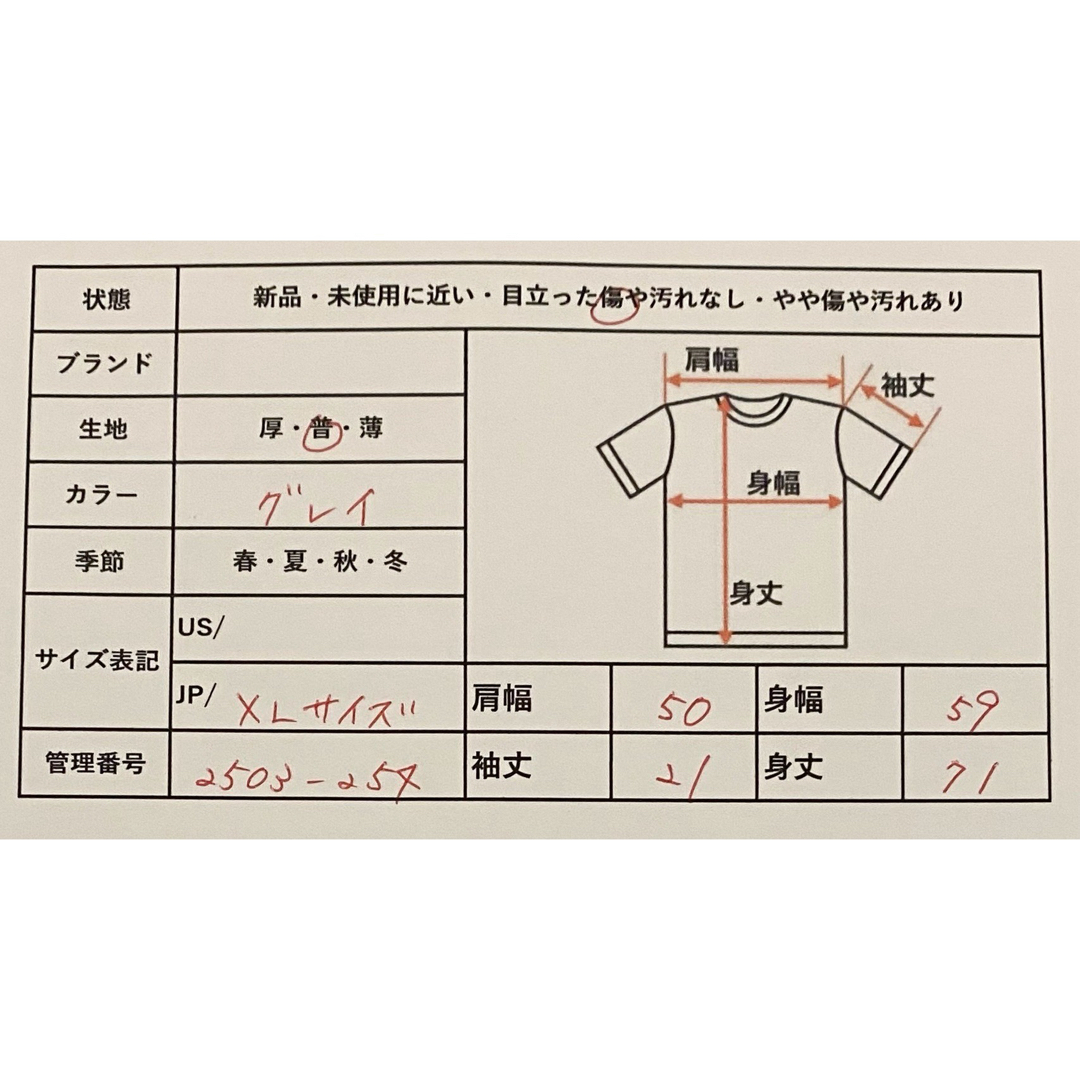 状態 新品・未使用に近い・目立った傷や汚れなし・やや傷や汚れあり
ブランド
生地 厚・普・薄
カラー グレイ
季節 春・夏・秋・冬
サイズ表記 US/
JP/ XLサイズ
管理番号 2503-254
肩幅
袖丈
身幅
身丈
肩幅 50 身幅 59
袖丈 21 身丈 71